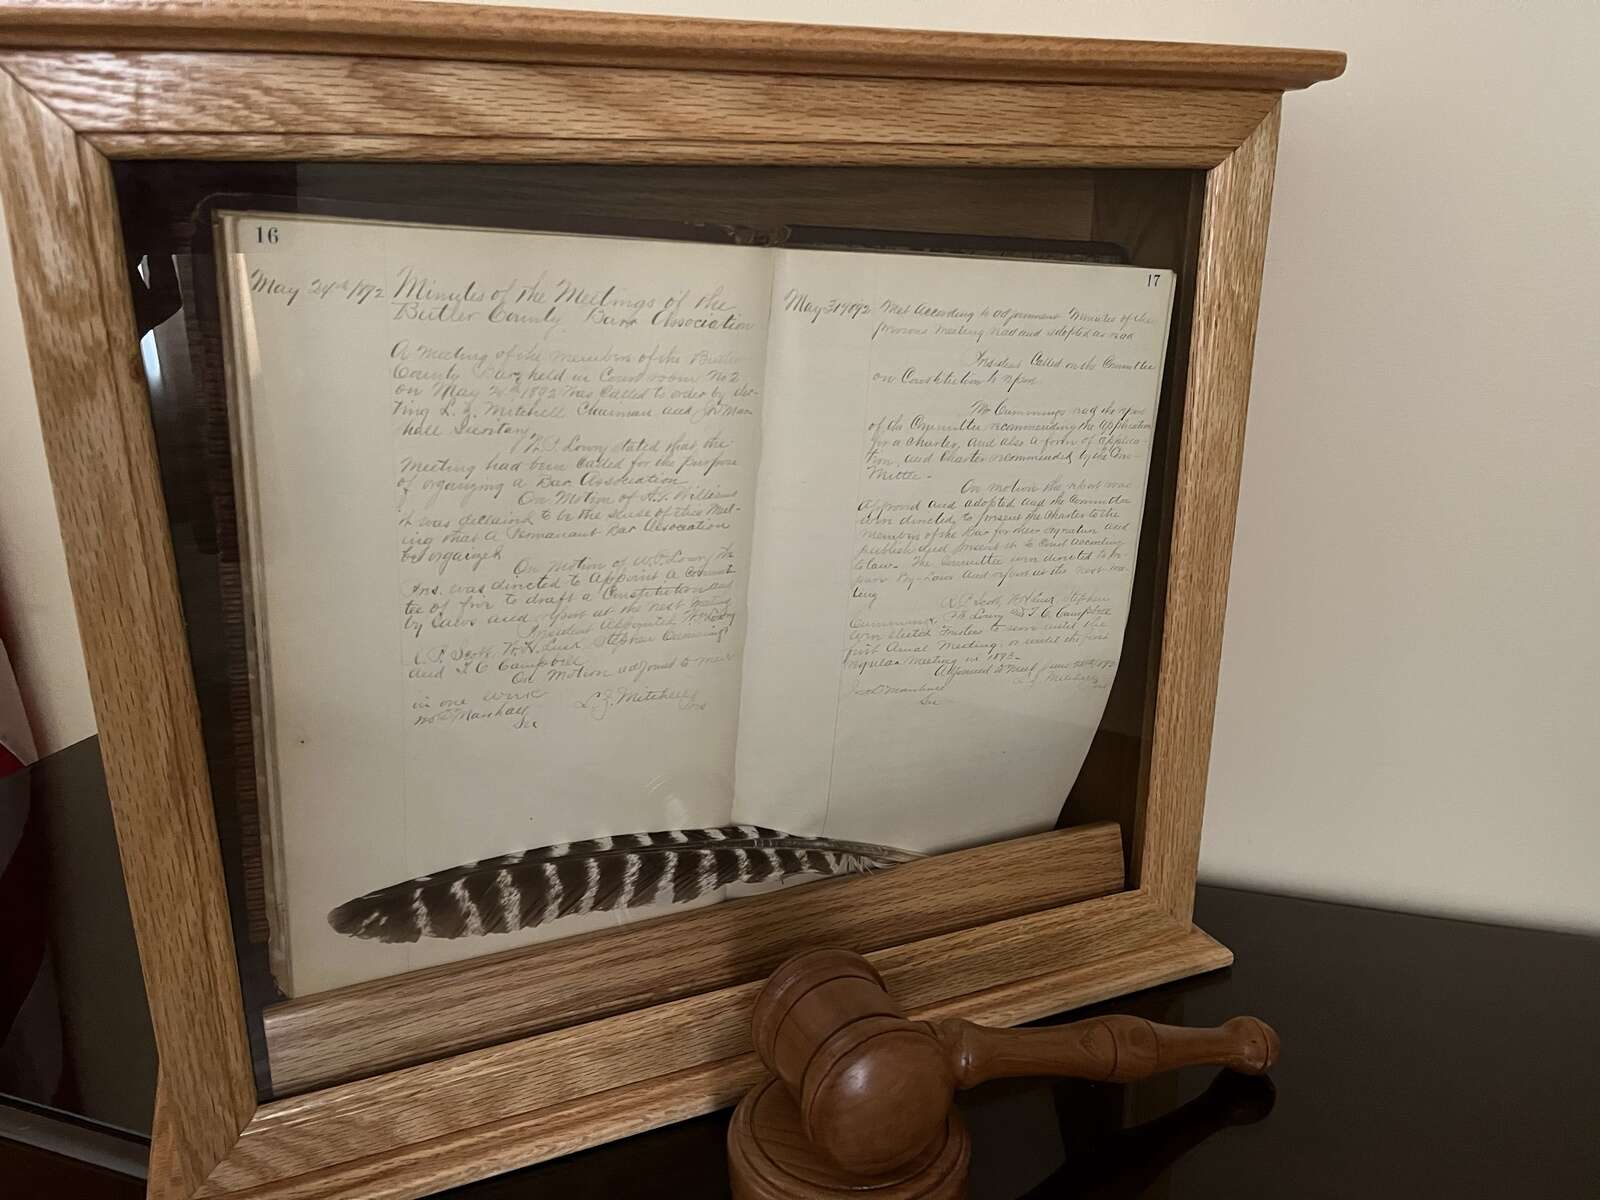 16
May 24th 1892 Minutes of the Meetings of the
Butler County Bar Association
A Meeting of the members of the Butler
County Bar held in Court room No 2
on May 24th 1892 was called to order by elec-
ting L. Z. Mitchell Chairman and Mar-
shall Secretary
Lowry stated that the
Meeting had been called for the purpose
of organizing a Bar Association
On Motion of Williams
it was declared to be the sense of this Meet-
ing that a Permanant Bar Association
be organized
On motion of Lowry the
Pres. was directed to appoint a Commit-
tee of five to draft a Constitution and
by Laws and report at the next Meeting
President Appointed Lowry
Scott, W. H. Lusk, Stephen Cummings
and T. C. Campbell
On Motion adjourned to meet
in one week
Marshall L. Z. Mitchell
Sec Pres
17
May 31st 1892 Met According to adjournment Minutes of the
previous Meeting read and adopted as read
President Called on the Committee
on Constitution to report
Mr Cummings read the report
of the Committee recommending the application
for a charter, and also a form of applica-
tion, and Charter recommended by the Com-
mittee -
On motion the report was
Approved and adopted and the Committee
were directed to present the Charter to the
members of the Bar for their signature and
publish and present it to Court according
to law. The Committee were directed to pre-
pare By-Laws and report at the next mee-
ting
Scott, W H Lusk, Stephen
Cummings, Lowry & T. C. Campbell
were elected Trustees to serve until the
first Annual Meeting, or until the first
regular Meeting in 1893-
Adjourned to Meet June 1892
Marshall L. Z. Mitchell
Sec Pres